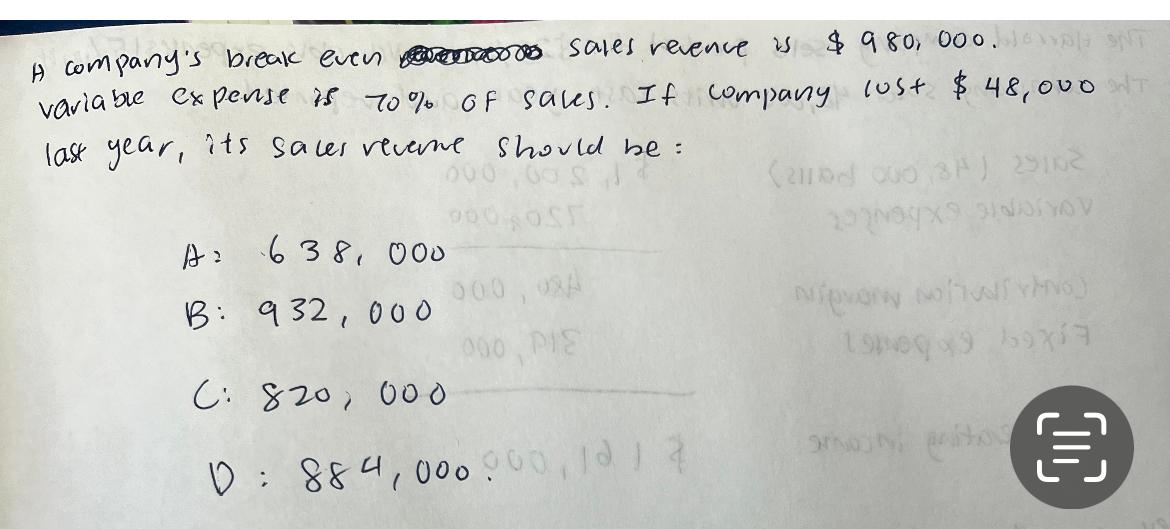 A company's break even sales revenue is $ 980, 000.
variable expense is 70% of sales. If company lost $ 48,000
last year, its sales revenue should be :
A: 638, 000
B: 932, 000
C: 820, 000
D: 884, 000.